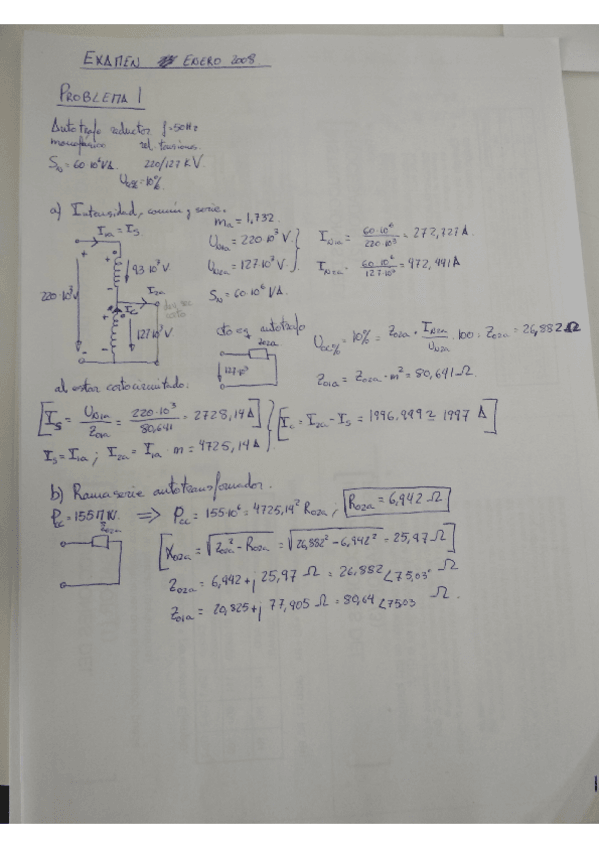 EXAMEN ENERO 2008
PROBLEMA 1
Autotrafo reductor f=50Hz
monofásico rel. tensiones.
S_N = 60·10⁶VA. 220/127 KV.
U_cc% = 10%
a) Intensidad, común y serie.
m_a = 1,732.
I_1a = I_s
U_N1a = 220·10³ V
I_N1a = 60·10⁶/220·10³ = 272,727A
93·10³ V
U_N2a = 127·10³ V
I_N2a = 60·10⁶/127·10³ = 472,441A
I_2a
220·10³ V
S_N = 60·10⁶ VA.
I_c
127·10³ V
cto eq autotrafo
Z_02a
127·10³
U_cc% = 10% = Z_02a · I_N2a/U_N2a · 100 ; Z_02a = 26,882 Ω
Z_01a = Z_02a · m² = 80,641 Ω.
al estar cortocircuitado:
[I_s = U_N1a/Z_01a = 220·10³/80,641 = 2728,14A]
[I_c = I_2a - I_s = 1996.999 ≃ 1997 A]
I_s = I_1a ; I_2a = I_1a · m = 4725,14A
b) Rama serie autotransformador.
P_cc = 155MW. ⇒ P_cc = 155·10⁶ = 4725,14² R_02a ; R_02a = 6,942 Ω
Z_02a
[X_02a = √(Z_02a² - R_02a²) = √(26,882² - 6,942²) = 25,97 Ω]
Z_02a = 6,942 + j 25,97 Ω = 26,882 ∠75,03° Ω
Z_01a = 20,825 + j 77,905 Ω = 80,64 ∠75,03 Ω.